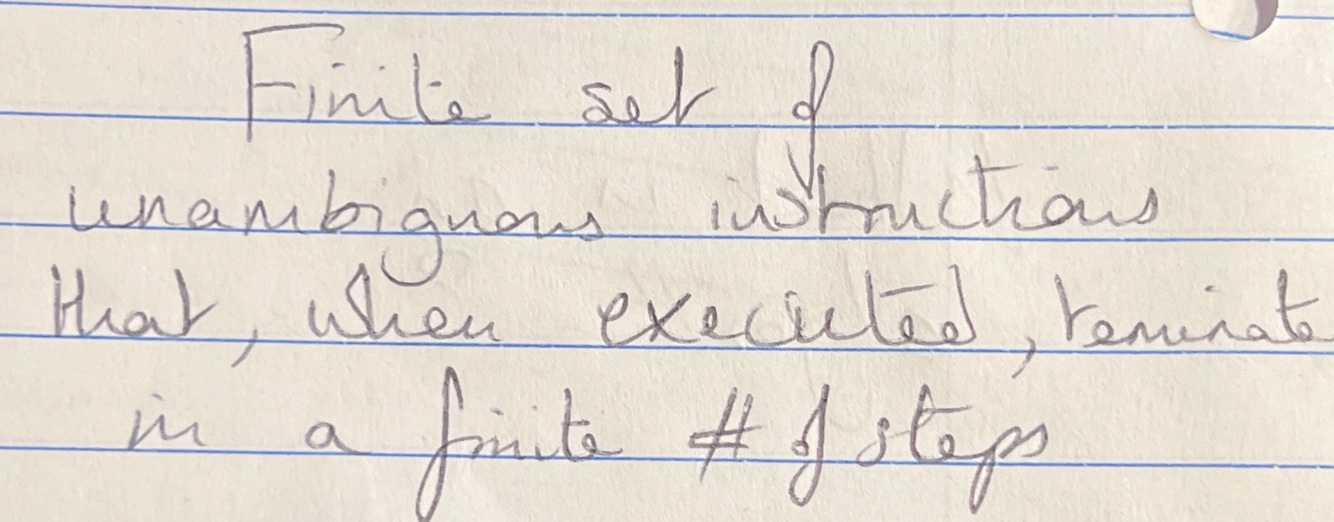 Finite set of
unambiguous instructions
that, when executed, terminate
in a finite # of steps